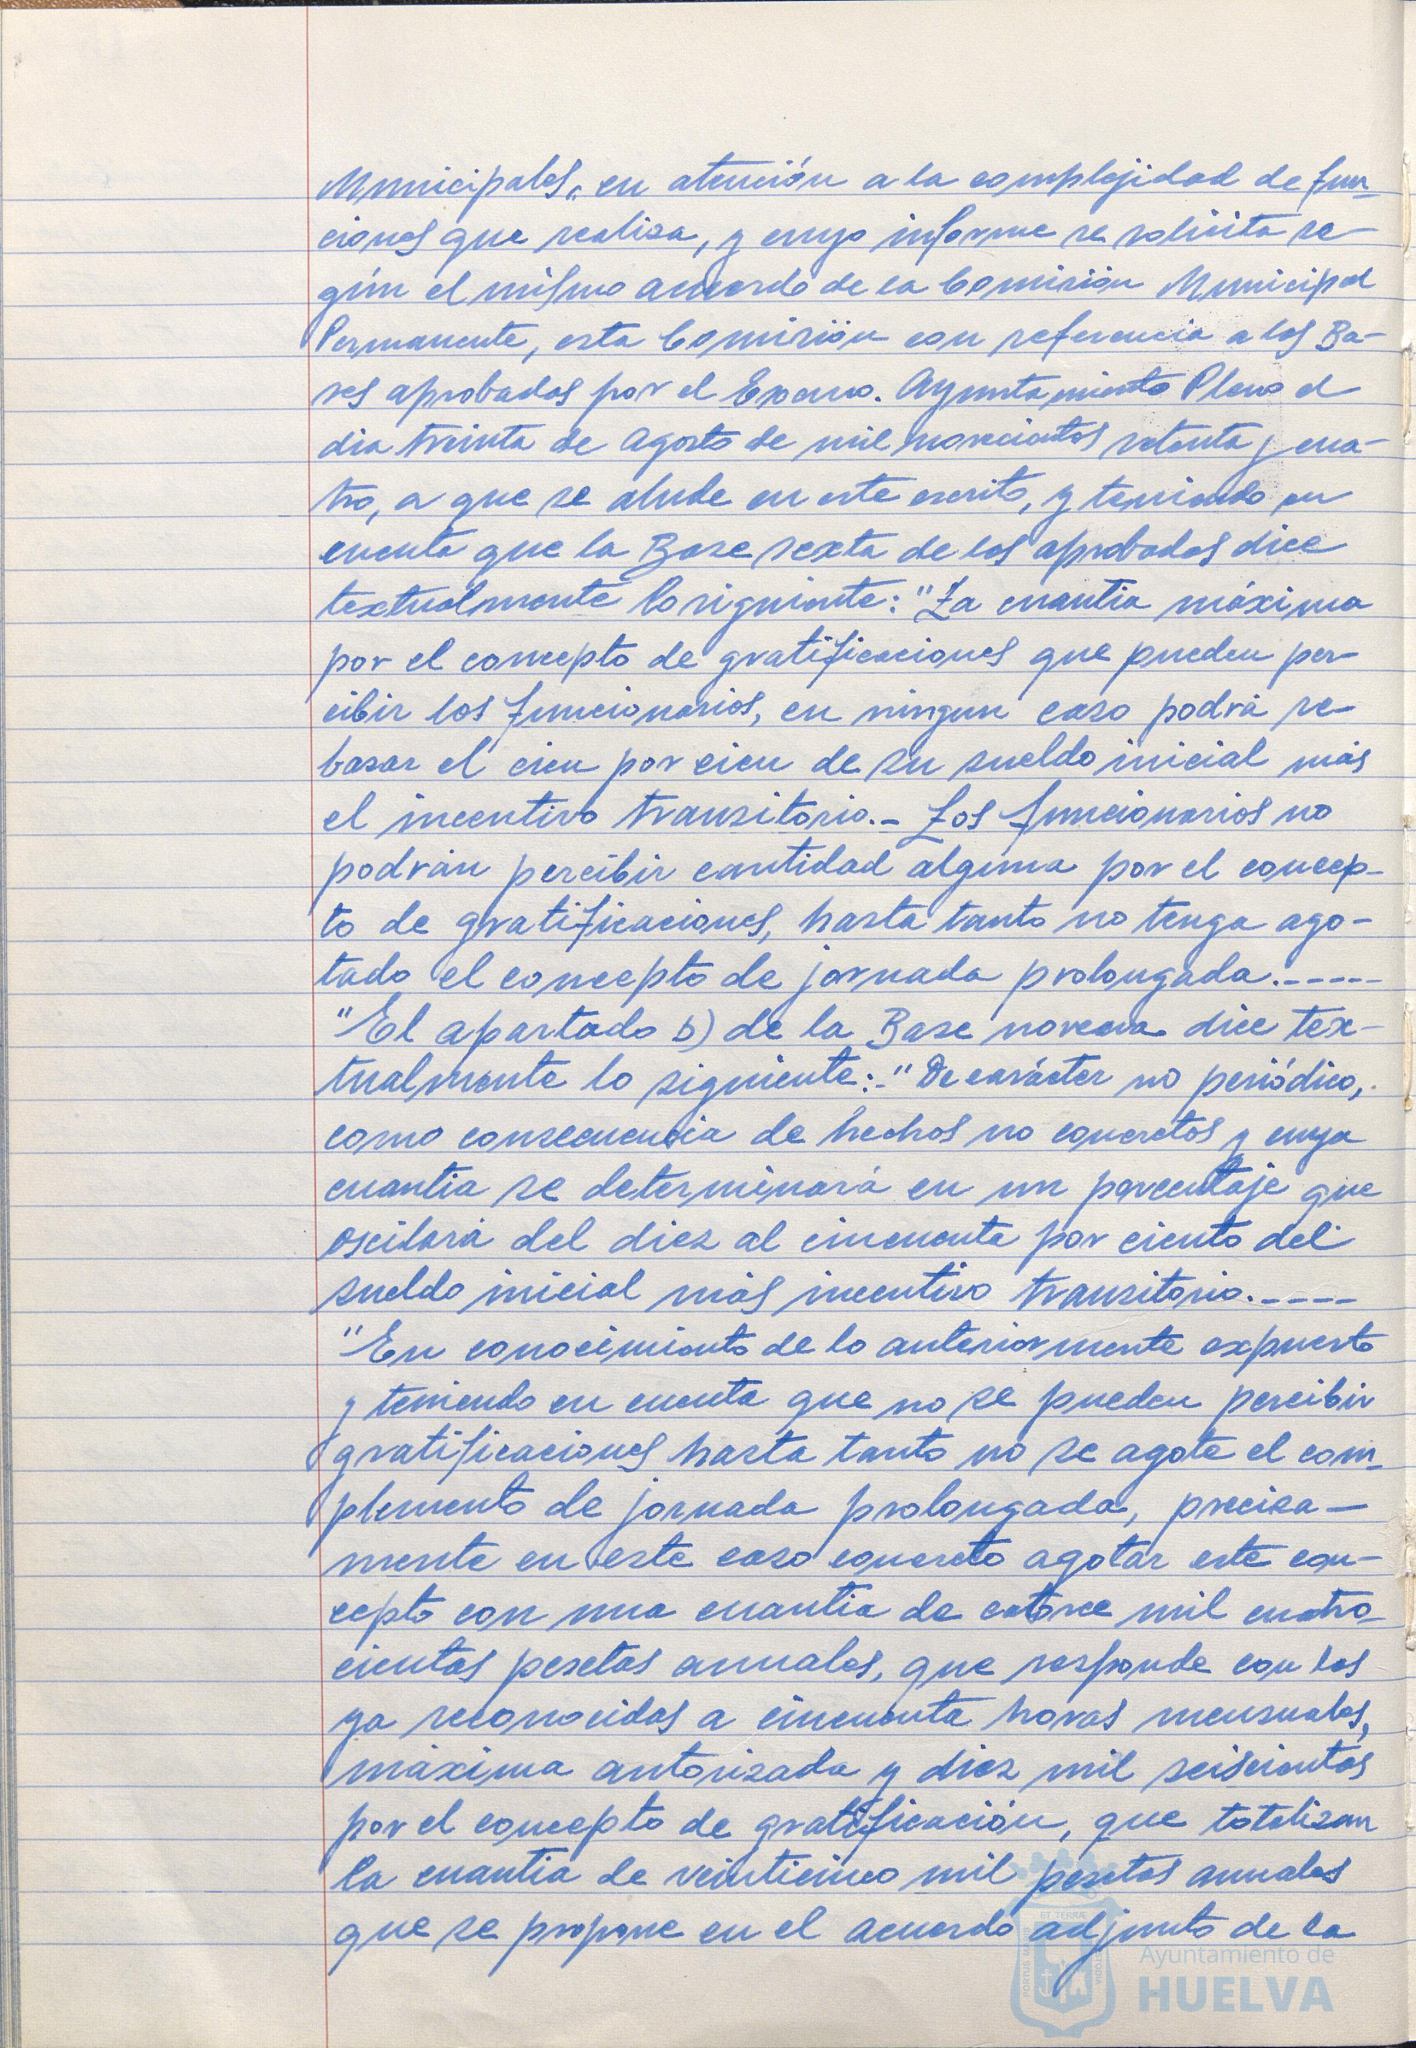 Municipales, en atención a la complejidad de fun-
ciones que realiza, y cuyo informe se solicita se-
gún el mismo acuerdo de la Comisión Municipal
Permanente, esta Comisión con referencia a las Ba-
ses aprobadas por el Excmo. Ayuntamiento Pleno el
dia treinta de agosto de mil novecientos setenta y cua-
tro, a que se alude en este escrito, y teniendo en
cuenta que la Base sexta de las aprobadas dice
textualmente lo siguiente: "La cuantia máxima
por el concepto de gratificaciones que pueden per-
cibir los funcionarios, en ningun caso podrá re-
basar el cien por cien de su sueldo inicial más
el incentivo transitorio.- Los funcionarios no
podrán percibir cantidad alguna por el concep-
to de gratificaciones, hasta tanto no tenga ago-
tado el concepto de jornada prolongada.-----
"El apartado b) de la Base novena dice tex-
tualmente lo siguiente:-"De carácter no periódico,
como consecuencia de hechos no concretos y cuya
cuantia se determinará en un porcentaje que
oscilará del diez al cincuenta por ciento del
sueldo inicial más incentivo transitorio.----
"En conocimiento de lo anteriormente expuesto
y teniendo en cuenta que no se pueden percibir
gratificaciones hasta tanto no se agote el com-
plemento de jornada prolongada, precisa-
mente en este caso concreto agotar este con-
cepto con una cuantia de catorce mil cuatro-
cientas pesetas anuales, que responde con las
ya reconocidas a cincuenta horas mensuales,
máxima autorizada y diez mil seiscientas
por el concepto de gratificación, que totalizan
la cuantia de veinticinco mil pesetas anuales
que se propone en el acuerdo adjunto de la
ET TERRAE
PORTUS MARIS
CUSTODIA
Ayuntamiento de
HUELVA